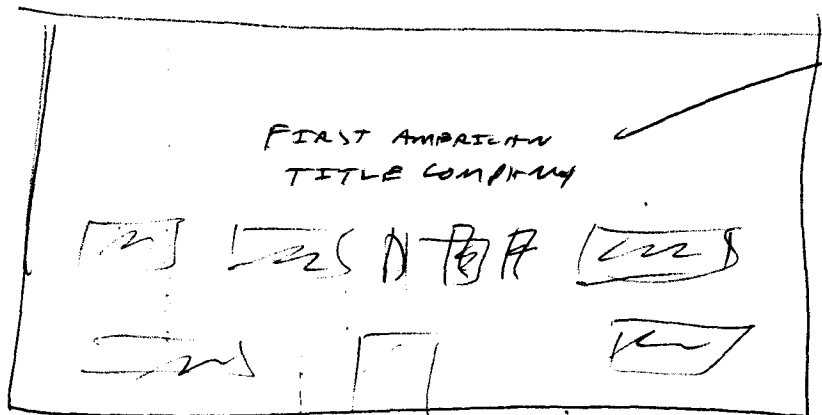 FIRST AMERICAN
TITLE COMPANY